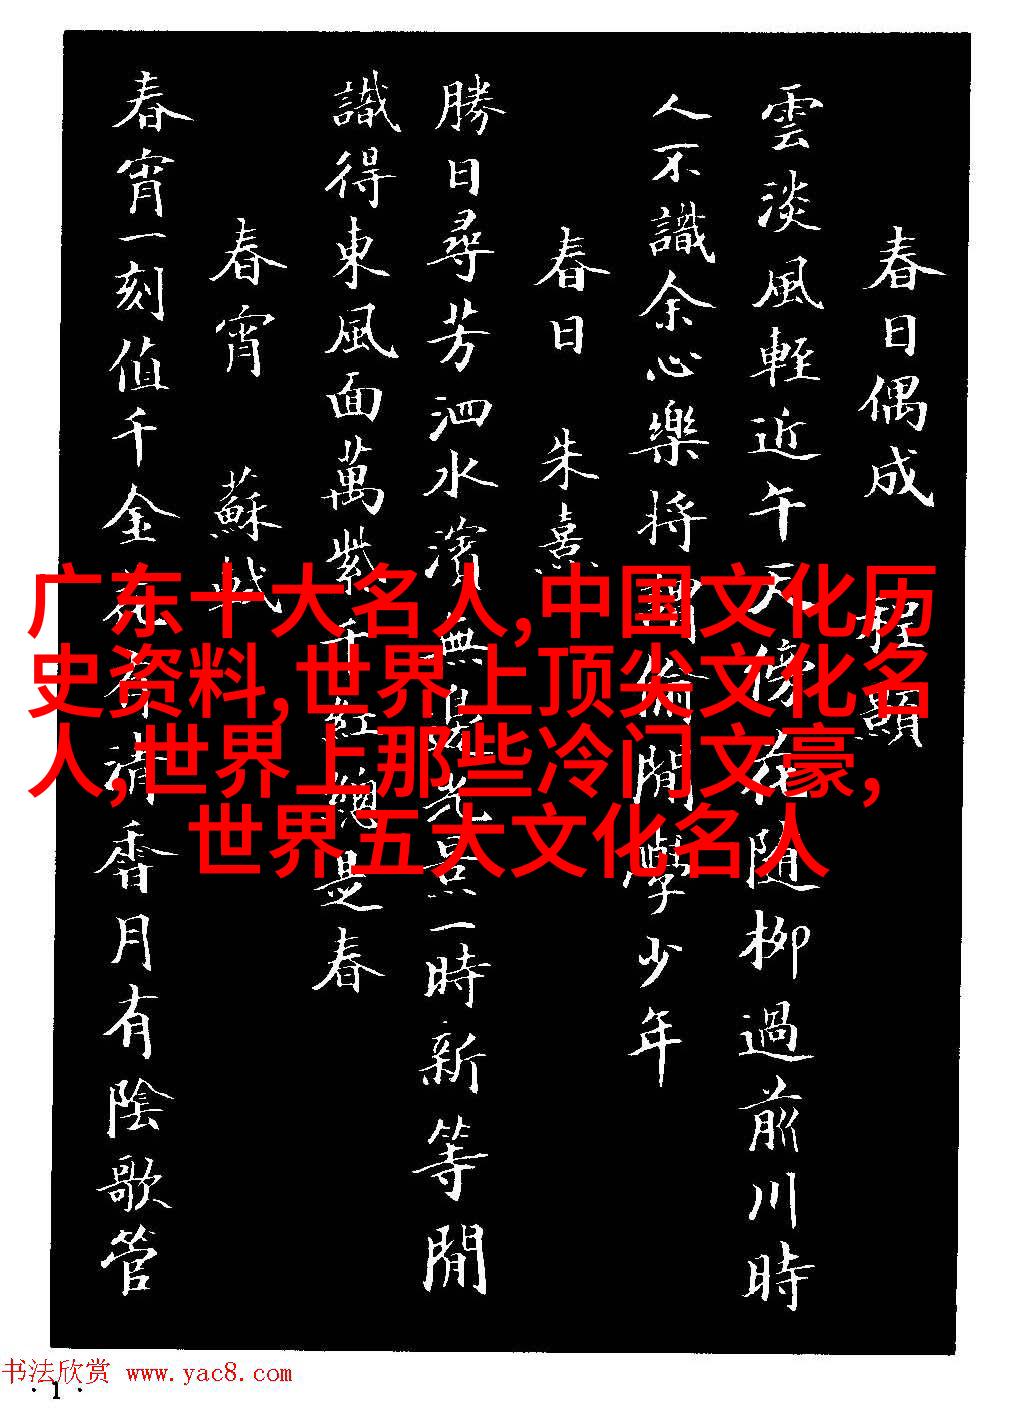 春日偶成 程顥
雲淡風輕近午天傍花随柳過前川時
人不識余心樂將謂偷閒學少年
春日 朱熹
勝日尋芳泗水濱無邊光景一時新等閒
識得東風面萬紫千紅總是春
春宵 蘇軾
春宵一刻值千金花有清香月有陰歌管
广东十大名人,中国文化历
史资料,世界上顶尖文化名
人,世界上那些冷门文豪,
世界五大文化名人
书法欣赏 www.yac8.com
·1·